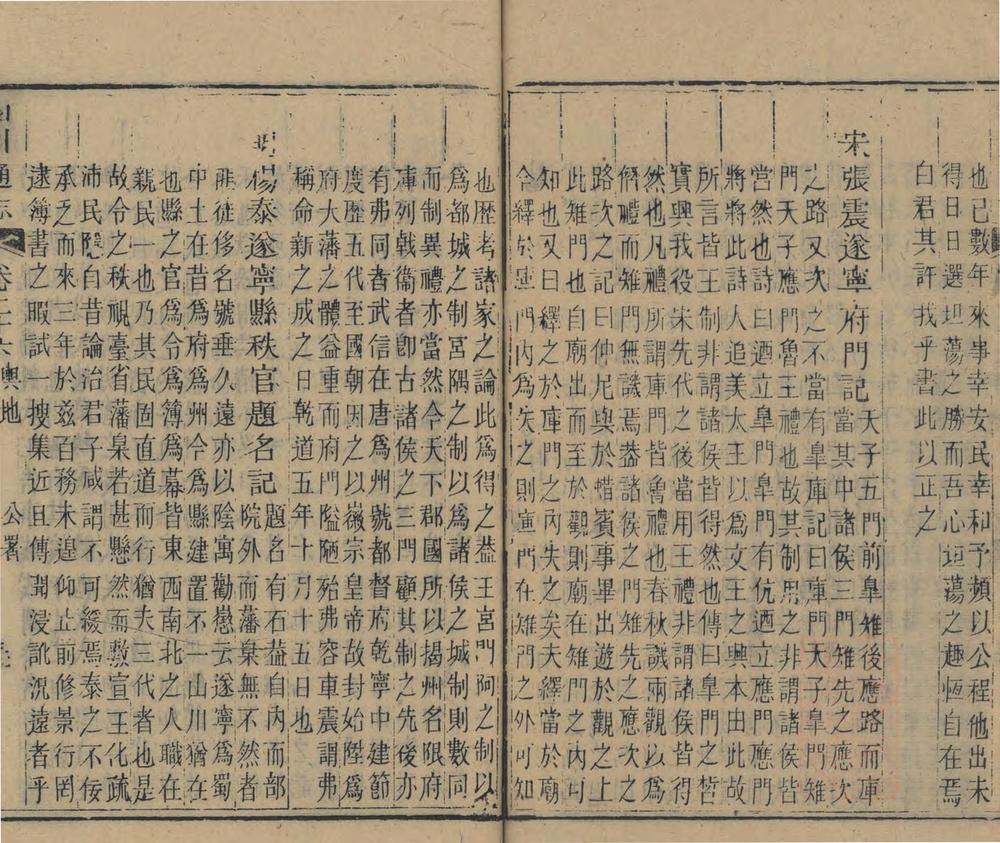 也已數年來事幸安民幸和予頻以公程他出未
得日日選坦蕩之勝而吾心坦蕩之趣恆自在焉
白君其許我乎書此以正之
宋張震遂寧府門記天子五門前皐雉後應路而庫
之路又次之不當有皐庫記曰庫門天子皐門雉
門天子應門魯王禮也故其制思之非謂諸侯皆
當然也詩曰廼立皐門皐門有伉廼立應門應門
將將此詩人追美太王以爲文王之興本由此故
所言皆王制非謂諸侯皆得然也傳曰皐門之
實與我役宋先代之後當用王禮非謂諸侯皆得
然也凡禮所謂庫門皆魯禮也春秋譏兩觀以爲
僭禮而雉門無譏焉葢諸侯之門雉先之應次之
路次之記曰仲尼與於惜賓事畢出遊於觀之上
此雉門也自廟出而至於觀則廟在雉門之內可
知也又曰繹之於庫門之內失之矣夫繹當於廟
今繹於庫門內爲失之則庫門在雉門之外可知
也歷考諸家之論此爲得之葢王宮門阿之制以
爲都城之制宮隅之制以爲諸侯之城制則數同
而制異禮亦當然今天下郡國所以揭州名限府
庫列戟衞者卽古諸侯之三門顧其制之先後亦
有弗同者武信在唐爲州號都督府乾寧中建節
度歷五代至國朝因之以徽宗皇帝故封始陞爲
府大藩之體益重而府門隘陋殆弗容車震謂弗
稱命新之成之日乾道五年十月十五日也
明楊泰遂寧縣秩官題名記題名有石葢自內而部
院外而藩臬無不然者
非徒侈名號垂久遠亦以陰寓勸懲云遂寧爲蜀
中土在昔爲府爲州今爲縣建置不一山川猶在
也縣之官爲令爲簿爲幕皆東西南北之人職在
親民一也乃其民固直道而行猶夫三代者也是
故令之秩視臺省藩臬若甚懸然而敷宣王化疏
沛民隱自昔論治君子咸謂不可緩焉泰之不佞
承乏而來三年於兹百務未遑仰止前修景行罔
逮簿書之暇試一搜集近且傳聞浸訛況遠者乎
通志 卷二十六 輿地 公署